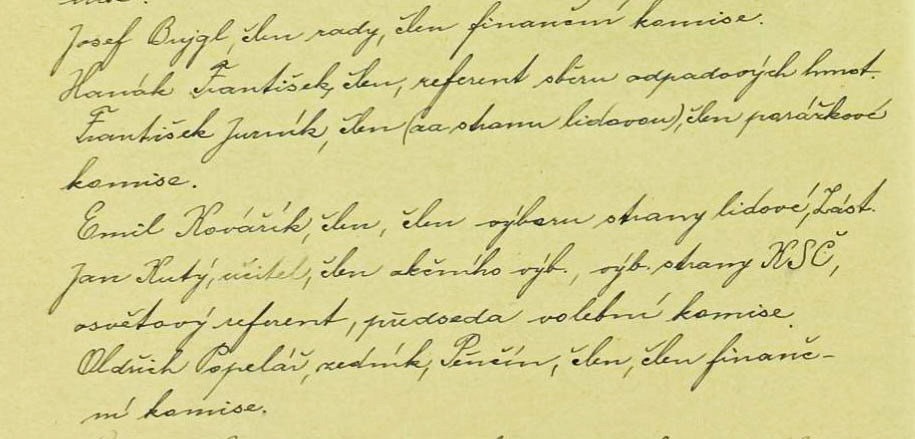 Josef Bujgl, člen rady, člen finanční komise.
Hanák František, člen, referent sběru odpadových hmot.
František Jurník, člen (za stranu lidovou), člen porážkové
komise.
Emil Kovářík, člen, člen výboru strany lidové, Lást.
Jan Kutý, učitel, člen akčního výb., výb. strany KSČ,
osvětový referent, předseda volební komise
Oldřich Popelář, zedník, Pěnčín, člen, člen finanč-
ní komise.